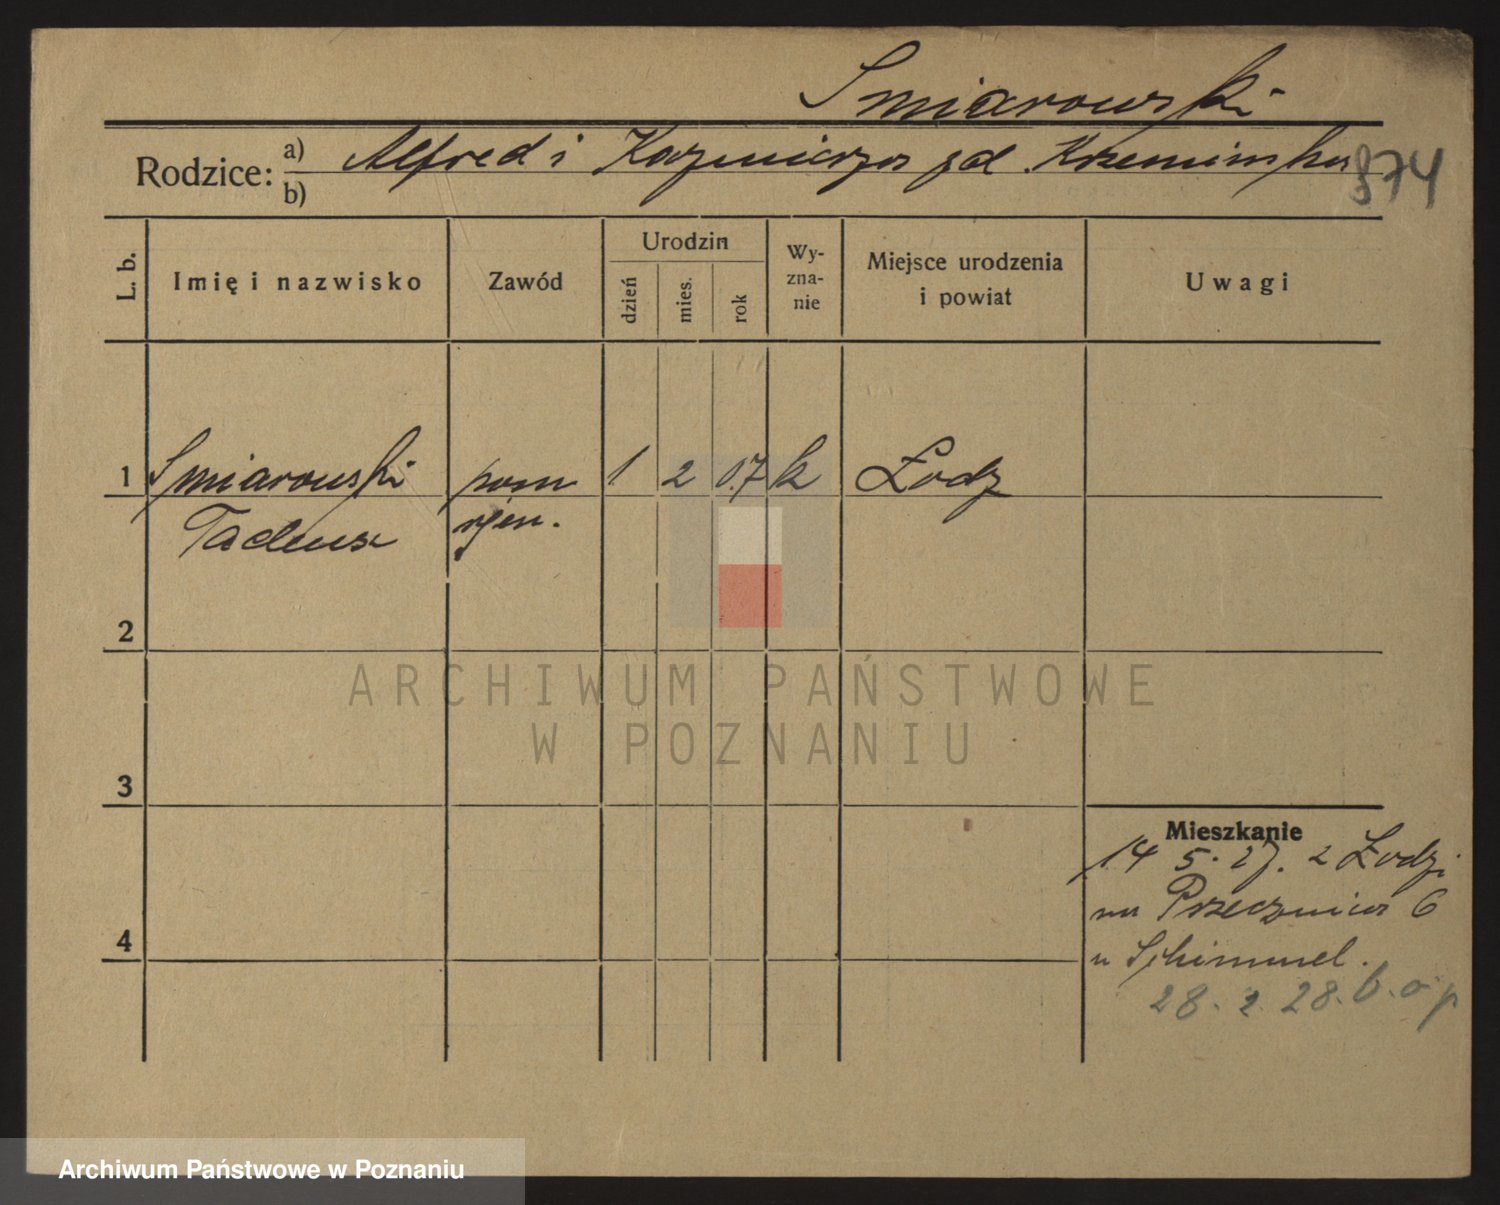 Smiarowski
Rodzice: a) Alfred i Kazmiera zd. Krzeminska
b)
874
L. b.
Imię i nazwisko
Zawód
Urodzin
dzień
mies.
rok
Wy-
zna-
nie
Miejsce urodzenia
i powiat
Uwagi
1 Smiarowski pom 1 2 07 k Łodz
Tadeusz
2
3
4
Mieszkanie
14 5. 27. z Łodzi
na Przecznica 6
u Schimmel.
28. 2. 28. b. o p
ARCHIWUM PAŃSTWOWE
W POZNANIU
Archiwum Państwowe w Poznaniu